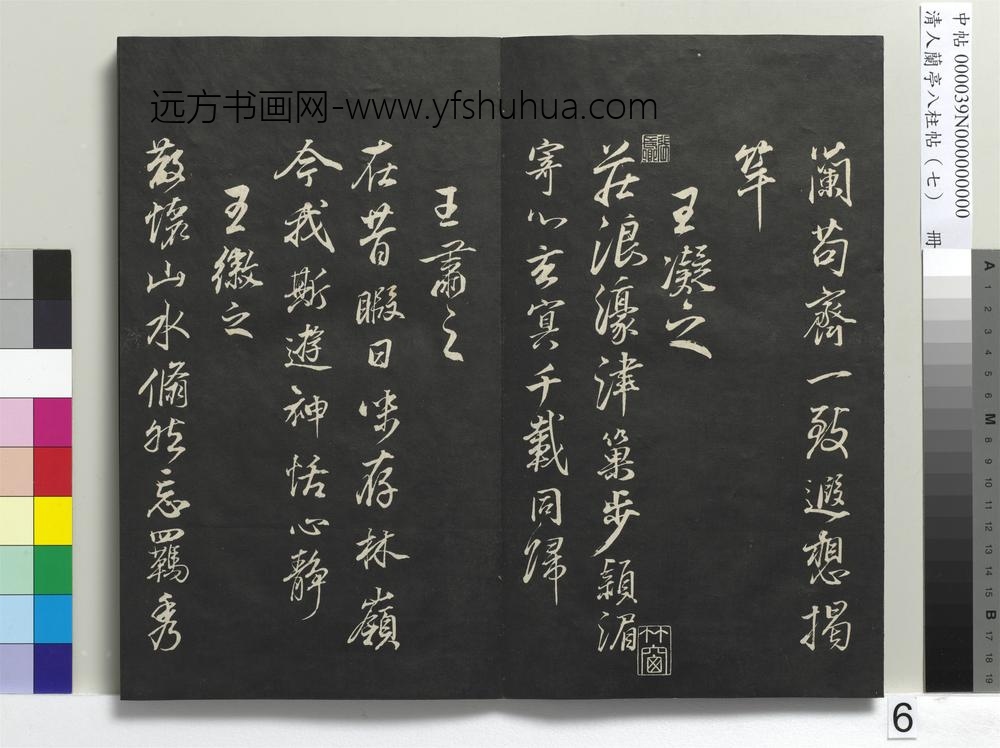 中帖 000039N000000000
清人蘭亭八柱帖（七） 冊
远方书画网-www.yfshuhua.com
蘭苟齊一致遐想揭
竿
王凝之
莊浪濠津巢步潁湄
寄心玄冥千載同歸
王肅之
在昔暇日味存林嶺
今我斯遊神恬心靜
王徽之
散懷山水翛然忘羈秀
竹窗
A 1 2 3 4 5 6 M 8 9 10 11 12 13 14 15 B 17 18 19
6